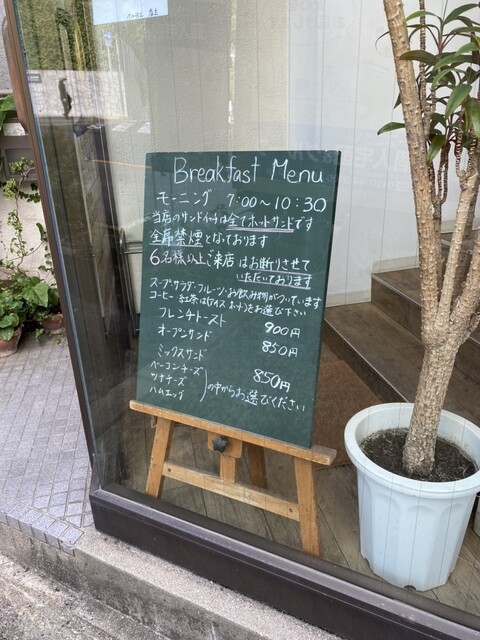 Breakfast Menu
モーニング 7:00〜10:30
当店のサンドイッチは全てホットサンドです
全席禁煙となっております
6名様以上ご来店はお断りさせて
いただいております
スープ・サラダ・フルーツ・お飲み物がついています
コーヒー・紅茶は(アイス ホット)をお選び下さい
フレンチトースト 900円
オープンサンド 850円
ミックスサンド
ベーコンチーズ 850円
ツナチーズ の中からお選びください
ハムエッグ